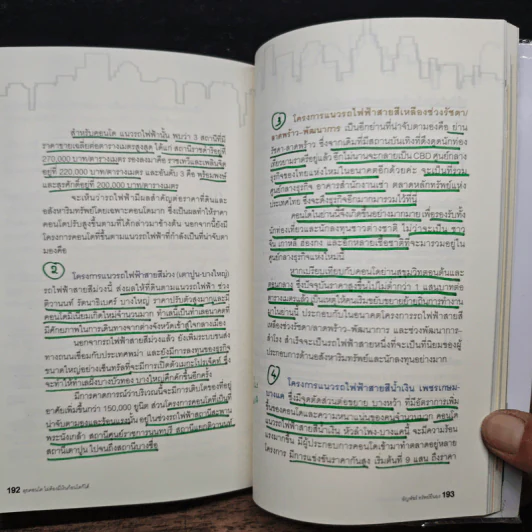 สำหรับคอนโด แนวรถไฟฟ้านั้น พบว่า 3 สถานีที่มี
ราคาขายเฉลี่ยต่อตารางเมตรสูงสุด ได้แก่ สถานีราชดำริอยู่ที่
270,000 บาท/ตารางเมตร รองลงมาคือ ราชเทวีและเพลินจิต
อยู่ที่ 220,000 บาท/ตารางเมตร และอันดับ 3 คือ พร้อมพงษ์
และสุรศักดิ์อยู่ที่ 200,000 บาท/ตารางเมตร
จะเห็นว่ารถไฟฟ้ามีผลสำคัญต่อราคาที่ดินและ
อสังหาริมทรัพย์โดยเฉพาะคอนโดมาก ซึ่งเป็นผลทำให้ราคา
คอนโดปรับสูงขึ้นตามที่ได้กล่าวมาข้างต้น นอกจากนี้ยังมี
โครงการคอนโดที่ขึ้นตามแนวรถไฟฟ้าที่กำลังเป็นที่น่าจับตา
มองคือ
2 โครงการแนวรถไฟฟ้าสายสีม่วง (เตาปูน-บางใหญ่)
รถไฟฟ้าสายสีม่วงนี้ ส่งผลให้ที่ดินตามแนวรถไฟฟ้า ช่วง
ติวานนท์ รัตนาธิเบศร์ บางใหญ่ ราคาปรับตัวสูงมากและมี
คอนโดมิเนียมเกิดใหม่จำนวนมาก ทำเลนี้เป็นทำเลอนาคต
ที่มีศักยภาพในการเดินทางจากต่างจังหวัดเข้าสู่ใจกลางเมือง
นอกจากรถไฟฟ้าสายสีม่วงแล้ว ยังเพิ่มระบบขนส่ง
ทางถนนเชื่อมกับประเทศพม่า และยังมีการลงทุนของธุรกิจ
ขนาดใหญ่อย่างเซ็นทรัลที่จะมีการเปิดตัวเมกะโปรเจ็กต์ ซึ่ง
จะทำให้ทำเลฝั่งบางบัวทอง บางใหญ่คึกคักขึ้นอีกครั้ง
มีการคาดการณ์ว่าบริเวณนี้จะมีการเติบโตของที่อยู่
อาศัยเพิ่มขึ้นกว่า 150,000 ยูนิต ส่วนโครงการคอนโดที่เป็นที่
น่าจับตามองและร้อนแรงนั้น อยู่ในช่วงรถไฟฟ้าสถานีสะพาน
พระนั่งเกล้า สถานีศูนย์ราชการนนทบุรี สถานีแยกติวานนท์
สถานีเตาปูน ไปจนถึงสถานีบางซื่อ
192
3 โครงการแนวรถไฟฟ้าสายสีเหลืองช่วงรัชดา/
ลาดพร้าว-พัฒนาการ เป็นอีกย่านที่น่าจับตามองคือ ย่าน
รัชดา-ลาดพร้าว ซึ่งจากเดิมที่มีสถานบันเทิงที่ดึงดูดนักท่อง
เที่ยวยามราตรีอยู่แล้ว อีกไม่นานจะกลายเป็น CBD ศูนย์กลาง
ธุรกิจของไทยแห่งใหม่ในอนาคตอีกด้วยค่ะ จะเป็นที่รวม
ศูนย์กลางธุรกิจ อาคารสำนักงานเช่า ตลาดหลักทรัพย์แห่ง
ประเทศไทย ซึ่งจะดึงธุรกิจอีกมากมารวมไว้ที่นี่
คอนโดในย่านนี้จึงเกิดขึ้นอย่างมากมาย เพื่อรองรับทั้ง
นักท่องเที่ยวและนักลงทุนชาวต่างชาติ ไม่ว่าจะเป็น ชาว
จีน เกาหลี ฮ่องกง และอีกหลายเชื้อชาติที่จะมารวมอยู่ใน
ศูนย์กลางธุรกิจแห่งใหม่นี้
หากเปรียบเทียบกับคอนโดย่านสุขุมวิทตอนต้นและ
ตอนกลาง ซึ่งปัจจุบันราคาสูงขึ้นไปไม่ต่ำกว่า 1 แสนบาทต่อ
ตารางเมตรแล้ว เป็นเหตุให้คนเริ่มขยับขยายย้ายถิ่นการทำงาน
มาในย่านนี้ ประกอบกับในอนาคตโครงการรถไฟฟ้าสายสี
เหลืองช่วงรัชดา/ลาดพร้าว-พัฒนาการ และช่วงพัฒนาการ-
สำโรง สำเร็จจะเป็นรถไฟฟ้าสายหนึ่งที่จะเป็นที่นิยมของผู้
ประกอบการด้านอสังหาริมทรัพย์และนักลงทุนอย่างมาก
4 โครงการแนวรถไฟฟ้าสายสีน้ำเงิน เพชรเกษม-
บางแค ซึ่งมีจุดตัดส่วนต่อขยาย บางหว้า ที่มีอัตราการเพิ่ม
ขึ้นของคอนโดและความหนาแน่นของคนจำนวนมาก คอนโด
แนวรถไฟฟ้าสายสีน้ำเงิน หัวลำโพง-บางแคนี้ จะมีความร้อน
แรงมากขึ้น มีผู้ประกอบการคอนโดเข้ามาทำตลาดอยู่หลาย
โครงการ มีการแข่งขันราคากันสูง เริ่มต้นที่ 9 แสน ถึงราคา
193